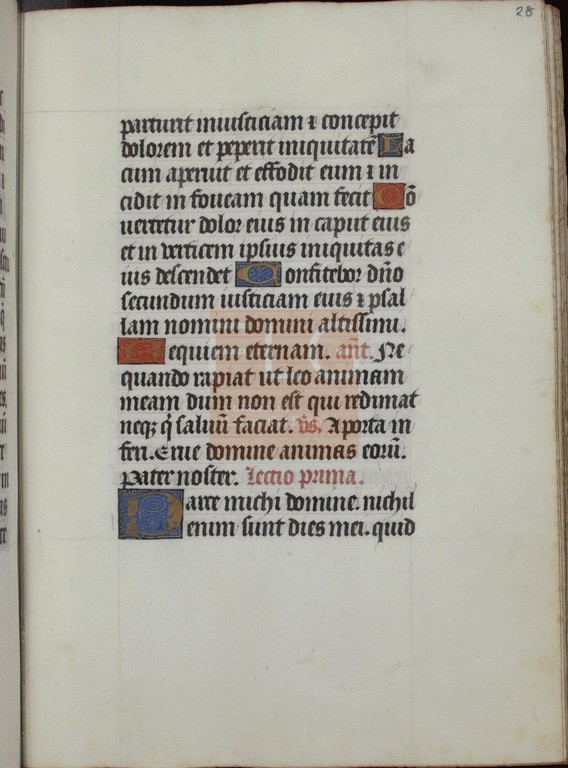 28
parturit iniusticiam ⁊ concepit
dolorem et peperit iniquitatē La
cum aperuit et effodit eum ⁊ in
cidit in foueam quam fecit Cō
uertetur dolor eius in caput eius
et in verticem ipsius iniquitas e
ius descendet Confitebor dn̄o
secundum iusticiam eius ⁊ psal
lam nomini domini altissimi.
Requiem eternam. an̄t. Ne
quando rapiat ut leo animam
meam dum non est qui redimat
neqꝫ q̇ saluū faciat. v̄s. A porta in
feri. Erue domine animas eorū.
Pater noster. Lectio prima.
Parce michi domine. nichil
enim sunt dies mei. quid